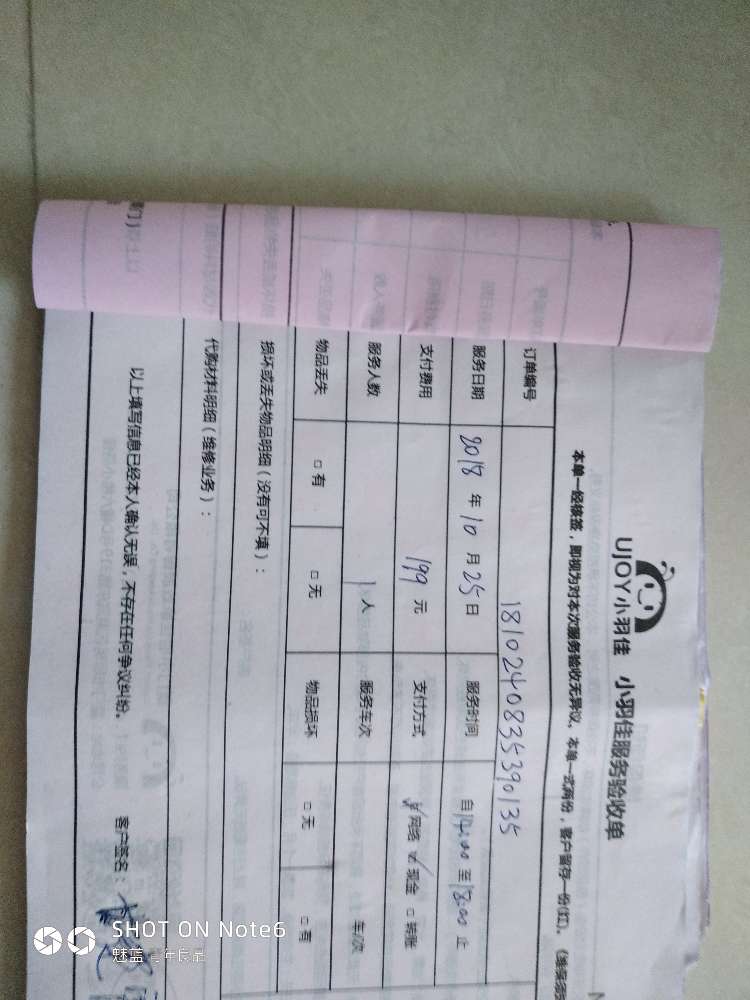 UJOY小羽佳 小羽佳服务验收单
本单一经核签，即视为对本次服务验收无异议，本单一式两份，客户留存一份(红)。
订单编号 181024083539035
服务日期 2018 年 10 月 25 日 服务时间 自 14:00 至 18:00 止
支付费用 199 元 支付方式 ☑网络 ☑现金 □转账
服务人数 1 人 服务车次 车/次
物品丢失 □有 □无 物品损坏 □无 □有
损坏或丢失物品明细（没有可不填）：
代购材料明细（维修业务）：
以上填写信息已经本人确认无误，不存在任何争议纠纷。
客户签名：
SHOT ON Note6
魅蓝 青年良品